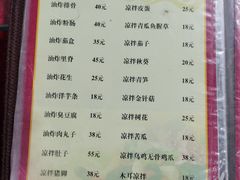 油炸排骨 40元 凉拌皮蛋 25元
油炸粉肠 40元 凉拌青瓜鱼腥草 18元
油炸茄盒 35元 凉拌茄子 18元
油炸里脊 45元 凉拌秋葵 20元
油炸花生 25元 凉拌青笋 18元
油炸洋芋条 18元 凉拌金针菇 18元
油炸臭豆腐 18元 凉拌树花 25元
油炸肉丸子 38元 凉拌苦瓜 18元
凉拌肚子 55元 凉拌乌鸡无骨鸡爪 38元
凉拌猪脚 38元 木耳凉拌 18元